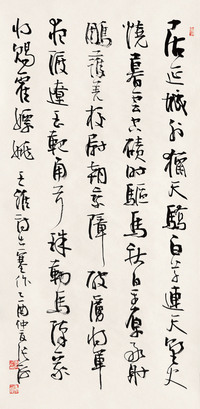 居延城外獵天驕白草連天野火
燒暮雲空磧時驅馬秋日平原好射
鵰護羌校尉朝乘障破虜將軍
夜渡遼玉靶角弓珠勒馬漢家
將賜霍嫖姚 王維詩出塞作 乙酉仲夏